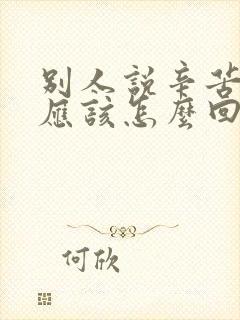 別人說辛苦
應該怎麼回
何欣